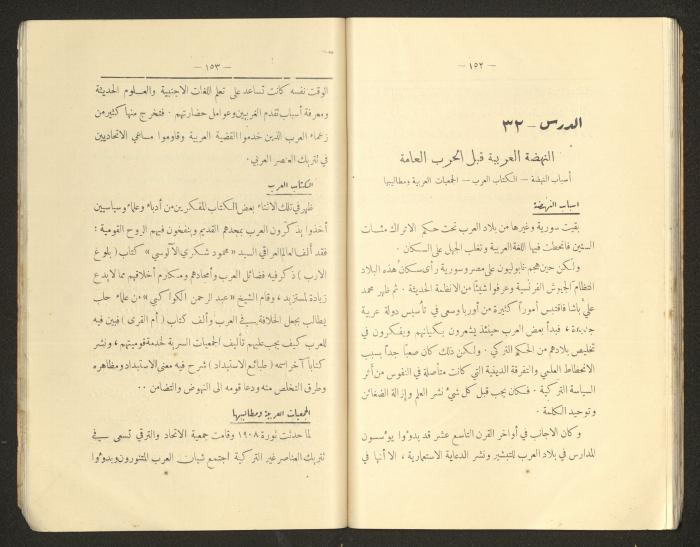 — ١٥٢ —
الدرس — ٣٢
النهضة العربية قبل الحرب العامة
أسباب النهضة — الكتاب العرب — الجمعيات العربية ومطاليبها
اسباب النهضة
بقيت سورية وغيرها من بلاد العرب تحت حكم الاتراك مئات
السنين فانحطت فيها اللغة العربية وتغلب الجهل على السكان .
ولكن حين هجم نابوليون على مصر وسورية رأى سكان هذه البلاد
انتظام الجيوش الفرنسية وعرفوا شيئاً من الانظمة الحديثة . ثم ظهر محمد
علي باشا فاقتبس أموراً كثيرة من أوربا وسعى في تأسيس دولة عربية
جديدة ، فبدأ بعض العرب حينئذ يشعرون بكيانهم ويفكرون في
تخليص بلادهم من الحكم التركي . ولكن ذلك كان صعباً جداً بسبب
الانحطاط العلمي والتفرقة الدينية التي كانت متأصلة في النفوس من أثر
السياسة التركية . فكان يجب قبل كل شيء نشر العلم وإزالة الضغائن
وتوحيد الكلمة .
وكان الاجانب في أواخر القرن التاسع عشر قد بدؤوا يؤسسون
المدارس في بلاد العرب للتبشير ونشر الدعاية الاستعمارية ، الا أنها في
— ١٥٣ —
الوقت نفسه كانت تساعد على تعلم اللغات الاجنبية والعلوم الحديثة
ومعرفة أسباب تقدم الغربيين وعوامل حضارتهم . فتخرج منها كثير من
زعماء العرب الذين خدموا القضية العربية وقاوموا مساعي الاتحاديين
في تتريك العنصر العربي .
الكتاب العرب
ظهر في تلك الاثناء بعض الكتاب المفكرين من أدباء وعلماء وسياسيين
أخذوا يذكرون العرب بمجدهم القديم وينفخون فيهم الروح القومية :
فقد ألف العالم العراقي السيد « محمود شكري الآلوسي » كتاب ( بلوغ
الارب ) ذكر فيه فضائل العرب وأمجادهم ومكارم أخلاقهم مما لا يدع
زيادة لمستزيد ، وقام الشيخ « عبد الرحمن الكواكبي » من علماء حلب
يطالب بجعل الخلافة في العرب وألف كتاب ( أم القرى ) فبين فيه
للعرب كيف يجب عليهم تأليف الجمعيات السرية لخدمة قوميتهم ، ونشر
كتاباً آخر اسمه ( طبائع الاستبداد ) شرح فيه معنى الاستبداد ومظاهره
وطرق التخلص منه ودعا قومه الى النهوض والتضامن . .
الجمعيات العربية ومطاليبها
لما حدثت ثورة ١٩٠٨ وقامت جمعية الاتحاد والترقي تسعى في
تتريك العناصر غير التركية اجتمع شبان العرب المتنورون وبدؤوا